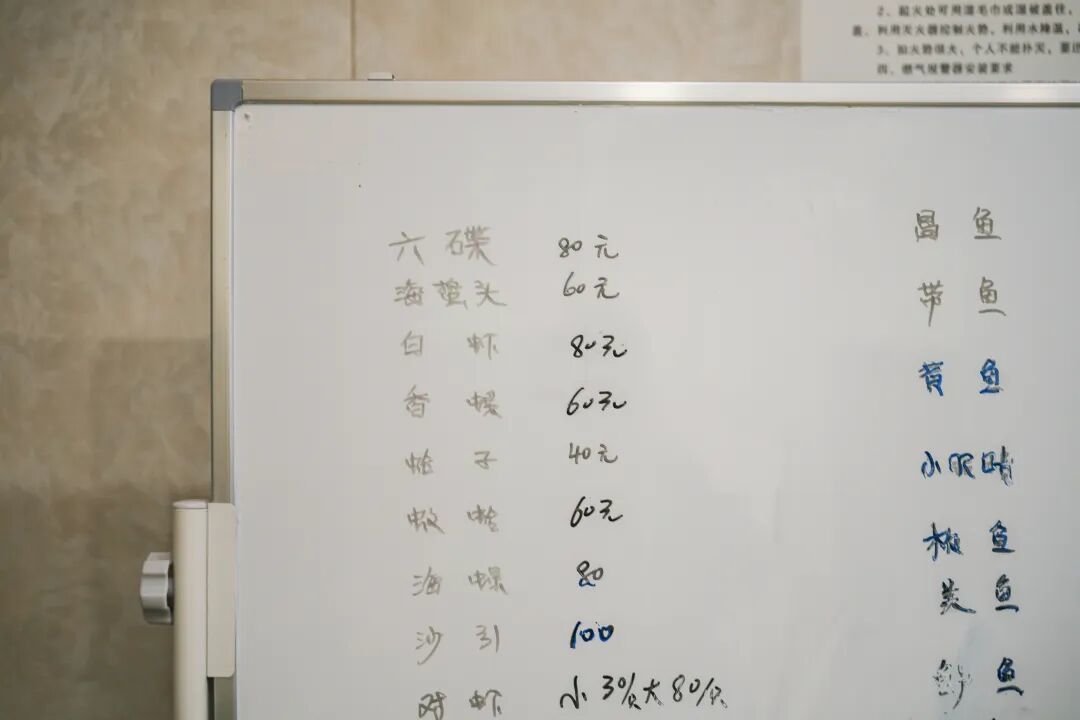 2、起火处可用湿毛巾或湿被盖住,
盖、利用灭火器控制火势,利用水降温,
3、如火势很大,个人不能扑灭,要迅
四、燃气报警器安装要求
六碟 80元
海蜇头 60元
白虾 80元
香螺 60元
蛤子 40元
60元
海螺 80
沙引 100
对虾 小30/只大80/只
昌鱼
带鱼
黄鱼
小眼睛
鱼
鱼
鱼